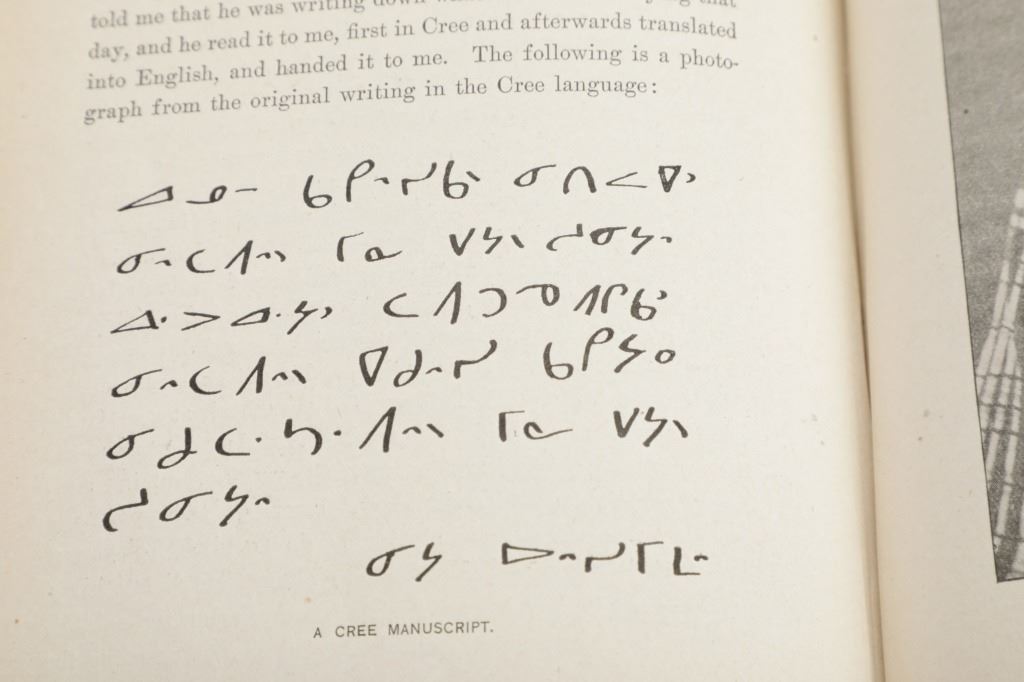 told me that he was writing down
day, and he read it to me, first in Cree and afterwards translated
into English, and handed it to me. The following is a photo-
graph from the original writing in the Cree language:
ᐊᓄᐨ ᑲᑭᐢᓯᑲᐠ ᓂᑎᐸᐁᐣ
ᓂᐢᑕᐱᐢᐠ ᒥᓇ ᐯᔭᐠ ᓱᓂᔭᐢ
ᐊᐧᐳᐊᐧᔭᐣ ᑕᐱᑐᓀᐱᒋᑲᐣ
ᓂᐢᑕᐱᐢᐠ ᐁᑯᐢᓯ ᑲᑭᔭᐤ
ᓂᑯᑕᐧᓴᐧᐱᐢᐠ ᒥᓇ ᐯᔭᐠ
ᓱᓂᔭᐢ
ᓂᔭ ᐅᐢᓯᒥᒪᐢ
A CREE MANUSCRIPT.